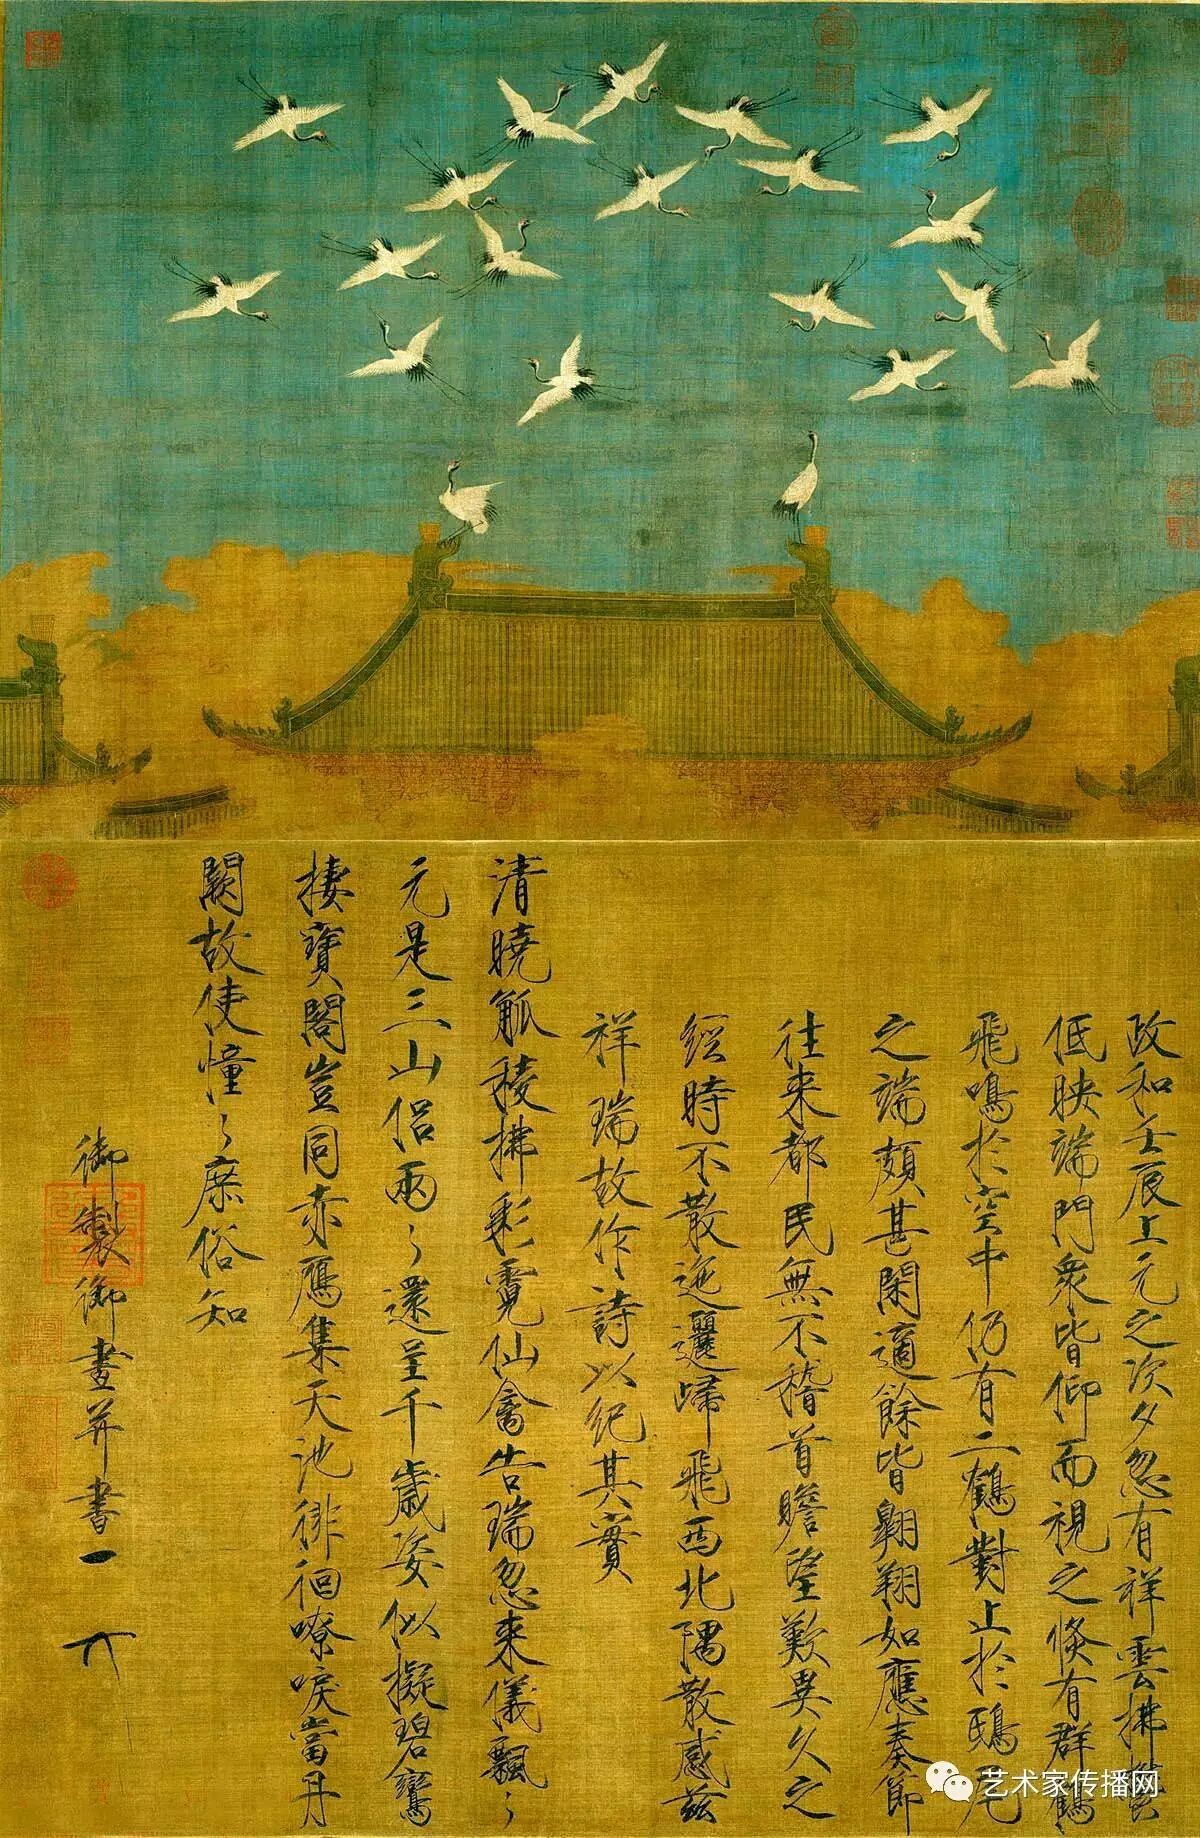 政和壬辰上元之次夕忽有祥雲拂鬱
低映端門衆皆仰而視之倏有群鶴
飛鳴於空中仍有二鶴對止於鴟尾
之端頗甚閑適餘皆翱翔如應奏節
往來都民無不稽首瞻望歎異久之
經時不散迤邐歸飛西北隅散感茲
祥瑞故作詩以紀其實
清曉觚稜拂彩霓仙禽告瑞忽來儀飄〻
元是三山侶兩〻還呈千歲姿似擬碧鸞
棲寶閣豈同赤鴈集天池徘徊嘹唳當丹
闕故使憧〻庶俗知
御製御畫并書
艺术家传播网